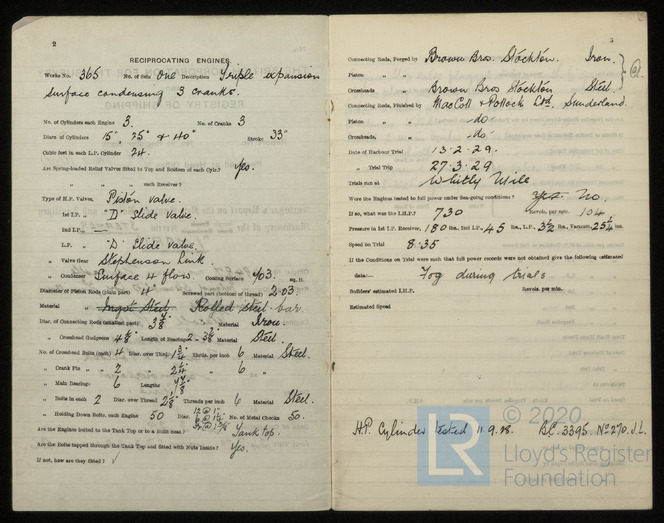 2
RECIPROCATING ENGINES.
Works No. 365 No. of Sets One Description Triple expansion
Surface condensing 3 cranks.
No. of Cylinders each Engine 3. No. of Cranks 3
Diars. of Cylinders 15", 25" & 40" Stroke 33"
Cubic feet in each L.P. Cylinder 24.
Are Spring-loaded Relief Valves fitted to Top and Bottom of each Cylr.? Yes.
" " " each Receiver?
Type of H.P. Valves, Piston valve.
1st L.P. " "D" Slide valve.
2nd L.P. " —
L.P. " "D" Slide valve.
" Valve Gear Stephenson Link.
" Condenser Surface 4 flow. Cooling Surface 703. sq. ft.
Diameter of Piston Rods (plain part) 4" Screwed part (bottom of thread) 2.03.
Material Ingot Steel Rolled steel bar
Diar. of Connecting Rods (smallest part) Material Iron.
" Crosshead Gudgeons 4 1/8" Length of Bearing Material Steel
No. of Crosshead Bolts (each) 4 Diar. over Thrd. 1 3/4" Thrds. per inch 6 Material Steel.
" Crank Pin " " 2 " 2 1/4" " 6 "
" Main Bearings 6 Lengths
" Bolts in each 2 Diar. over Thread 2 1/8" Threads per inch 6 Material Steel.
" Holding Down Bolts, each Engine 50 Diar. No. of Metal Chocks 50.
Are the Engines bolted to the Tank Top or to a Built Seat? Tank top.
Are the Bolts tapped through the Tank Top and fitted with Nuts Inside? Yes.
If not, how are they fitted? ✓
3
Connecting Rods, Forged by Brown Bros. Stockton. Iron.
Piston " "
Crossheads " Brown Bros Stockton Steel.
Connecting Rods, Finished by MacColl & Pollock Ltd. Sunderland.
Piston " " do
Crossheads, " do
Date of Harbour Trial 13.2.29.
" Trial Trip 27.3.29
Trials run at Whitly Mile
Were the Engines tested to full power under Sea-going conditions? Yes. No.
If so, what was the I.H.P.? 730 Revols. per min. 104
Pressure in 1st I.P. Receiver, 180 lbs., 2nd I.P., 45 lbs., L.P., 3 1/2 lbs., Vacuum, 25 1/4 ins.
Speed on Trial 8.35
If the Conditions on Trial were such that full power records were not obtained give the following estimated
data:— Fog during trials
Builders' estimated I.H.P. Revols. per min.
Estimated Speed
H.P. Cylinder tested 11.9.28. B.C. 3395. No 270. J.L.
© 2020
LR
Lloyd's Register
Foundation